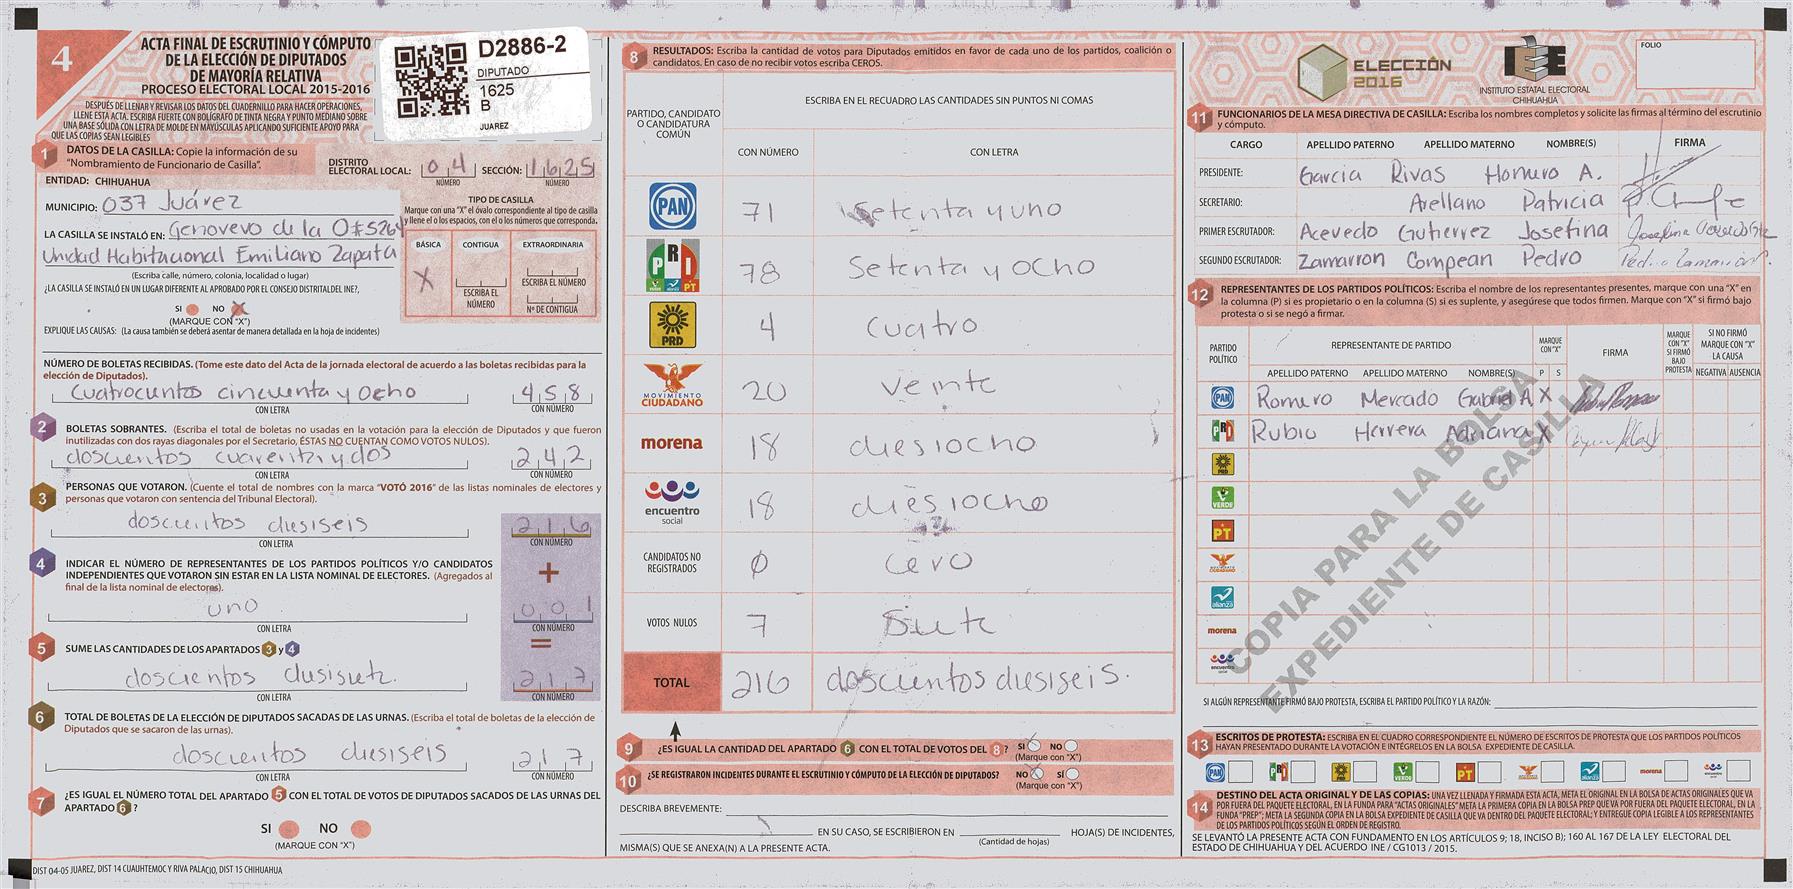 4
ACTA FINAL DE ESCRUTINIO Y CÓMPUTO
DE LA ELECCIÓN DE DIPUTADOS
DE MAYORÍA RELATIVA
PROCESO ELECTORAL LOCAL 2015-2016
DESPUÉS DE LLENAR Y REVISAR LOS DATOS DEL CUADERNILLO PARA HACER OPERACIONES,
LLENE ESTA ACTA. ESCRIBA FUERTE CON BOLÍGRAFO DE TINTA NEGRA Y PUNTO MEDIANO SOBRE
UNA BASE SÓLIDA CON LETRA DE MOLDE EN MAYÚSCULAS APLICANDO SUFICIENTE APOYO PARA
QUE LAS COPIAS SEAN LEGIBLES
D2886-2
DIPUTADO
1625
B
JUAREZ
1 DATOS DE LA CASILLA: Copie la información de su
"Nombramiento de Funcionario de Casilla".
DISTRITO
ELECTORAL LOCAL: 04 SECCIÓN: 1625
NÚMERO NÚMERO
ENTIDAD: CHIHUAHUA
MUNICIPIO: 037 Juárez
LA CASILLA SE INSTALÓ EN: Genovevo de la O #5264
Unidad Habitacional Emiliano Zapata
(Escriba calle, número, colonia, localidad o lugar)
¿LA CASILLA SE INSTALÓ EN UN LUGAR DIFERENTE AL APROBADO POR EL CONSEJO DISTRITAL DEL INE?,
SI NO X
(MARQUE CON "X")
EXPLIQUE LAS CAUSAS: (La causa también se deberá asentar de manera detallada en la hoja de incidentes)
TIPO DE CASILLA
Marque con una "X" el óvalo correspondiente al tipo de casilla
y llene el o los espacios, con el o los números que corresponda.
BÁSICA CONTIGUA EXTRAORDINARIA
X
ESCRIBA EL NÚMERO
ESCRIBA EL NÚMERO
Nº DE CONTIGUA
NÚMERO DE BOLETAS RECIBIDAS. (Tome este dato del Acta de la jornada electoral de acuerdo a las boletas recibidas para la
elección de Diputados).
Cuatrocientos cincuenta y ocho 458
CON LETRA CON NÚMERO
2 BOLETAS SOBRANTES. (Escriba el total de boletas no usadas en la votación para la elección de Diputados y que fueron
inutilizadas con dos rayas diagonales por el Secretario, ÉSTAS NO CUENTAN COMO VOTOS NULOS).
doscientos cuarenta y dos 242
CON LETRA CON NÚMERO
3 PERSONAS QUE VOTARON. (Cuente el total de nombres con la marca "VOTÓ 2016" de las listas nominales de electores y
personas que votaron con sentencia del Tribunal Electoral).
doscientos diesiseis 216
CON LETRA CON NÚMERO
4 INDICAR EL NÚMERO DE REPRESENTANTES DE LOS PARTIDOS POLÍTICOS Y/O CANDIDATOS
INDEPENDIENTES QUE VOTARON SIN ESTAR EN LA LISTA NOMINAL DE ELECTORES. (Agregados al
final de la lista nominal de electores).
+
uno 001
CON LETRA CON NÚMERO
=
5 SUME LAS CANTIDADES DE LOS APARTADOS 3 y 4
doscientos diesisiete. 217
CON LETRA CON NÚMERO
6 TOTAL DE BOLETAS DE LA ELECCIÓN DE DIPUTADOS SACADAS DE LAS URNAS. (Escriba el total de boletas de la elección de
Diputados que se sacaron de las urnas).
doscientos diesiseis 217
CON LETRA CON NÚMERO
7 ¿ES IGUAL EL NÚMERO TOTAL DEL APARTADO 5 CON EL TOTAL DE VOTOS DE DIPUTADOS SACADOS DE LAS URNAS DEL
APARTADO 6 ?
SI NO
(MARQUE CON "X")
DIST 04-05 JUAREZ, DIST 14 CUAUHTEMOC Y RIVA PALACIO, DIST 15 CHIHUAHUA
8 RESULTADOS: Escriba la cantidad de votos para Diputados emitidos en favor de cada uno de los partidos, coalición o
candidatos. En caso de no recibir votos escriba CEROS.
PARTIDO, CANDIDATO
O CANDIDATURA
COMÚN
ESCRIBA EN EL RECUADRO LAS CANTIDADES SIN PUNTOS NI COMAS
CON NÚMERO CON LETRA
PAN 71 setenta y uno
PRI VERDE alianza PT 78 Setenta y ocho
PRD 4 cuatro
MOVIMIENTO CIUDADANO 20 veinte
morena 18 diesiocho
encuentro social 18 diesiocho
CANDIDATOS NO REGISTRADOS 0 cero
VOTOS NULOS 7 Siete
TOTAL 216 doscientos diesiseis.
9 ¿ES IGUAL LA CANTIDAD DEL APARTADO 6 CON EL TOTAL DE VOTOS DEL 8 ? SI NO
(Marque con "X")
10 ¿SE REGISTRARON INCIDENTES DURANTE EL ESCRUTINIO Y CÓMPUTO DE LA ELECCIÓN DE DIPUTADOS? NO X SÍ
(Marque con "X")
DESCRIBA BREVEMENTE:
EN SU CASO, SE ESCRIBIERON EN HOJA(S) DE INCIDENTES,
(Cantidad de hojas)
MISMA(S) QUE SE ANEXA(N) A LA PRESENTE ACTA.
ELECCIÓN
2016
IEE
INSTITUTO ESTATAL ELECTORAL
CHIHUAHUA
FOLIO
11 FUNCIONARIOS DE LA MESA DIRECTIVA DE CASILLA: Escriba los nombres completos y solicite las firmas al término del escrutinio
y cómputo.
CARGO APELLIDO PATERNO APELLIDO MATERNO NOMBRE(S) FIRMA
PRESIDENTE: Garcia Rivas Homero A.
SECRETARIO: Arellano Patricia
PRIMER ESCRUTADOR: Acevedo Gutierrez Josefina
SEGUNDO ESCRUTADOR: Zamarron Compean Pedro
12 REPRESENTANTES DE LOS PARTIDOS POLÍTICOS: Escriba el nombre de los representantes presentes, marque con una "X" en
la columna (P) si es propietario o en la columna (S) si es suplente, y asegúrese que todos firmen. Marque con "X" si firmó bajo
protesta o si se negó a firmar.
PARTIDO POLÍTICO
REPRESENTANTE DE PARTIDO
APELLIDO PATERNO APELLIDO MATERNO NOMBRE(S)
MARQUE CON "X"
P S
FIRMA
MARQUE CON "X" SI FIRMÓ BAJO PROTESTA
SI NO FIRMÓ MARQUE CON "X" LA CAUSA
NEGATIVA AUSENCIA
PAN Romero Mercado Gabriel A X
PRI Rubio Herrera Adriana X
PRD
VERDE
PT
MOVIMIENTO CIUDADANO
alianza
morena
encuentro social
COPIA PARA LA BOLSA
EXPEDIENTE DE CASILLA
SI ALGÚN REPRESENTANTE FIRMÓ BAJO PROTESTA, ESCRIBA EL PARTIDO POLÍTICO Y LA RAZÓN:
13 ESCRITOS DE PROTESTA: ESCRIBA EN EL CUADRO CORRESPONDIENTE EL NÚMERO DE ESCRITOS DE PROTESTA QUE LOS PARTIDOS POLÍTICOS
HAYAN PRESENTADO DURANTE LA VOTACIÓN E INTÉGRELOS EN LA BOLSA EXPEDIENTE DE CASILLA.
PAN PRI PRD VERDE PT alianza morena encuentro
14 DESTINO DEL ACTA ORIGINAL Y DE LAS COPIAS: UNA VEZ LLENADA Y FIRMADA ESTA ACTA, META EL ORIGINAL EN LA BOLSA DE ACTAS ORIGINALES QUE VA
POR FUERA DEL PAQUETE ELECTORAL, EN LA FUNDA PARA "ACTAS ORIGINALES" META LA PRIMERA COPIA EN LA BOLSA PREP QUE VA POR FUERA DEL PAQUETE ELECTORAL, EN LA
FUNDA "PREP"; META LA SEGUNDA COPIA EN LA BOLSA EXPEDIENTE DE CASILLA QUE VA DENTRO DEL PAQUETE ELECTORAL; Y ENTREGUE COPIA LEGIBLE A LOS REPRESENTANTES
DE LOS PARTIDOS POLÍTICOS SEGÚN EL ORDEN DE REGISTRO.
SE LEVANTÓ LA PRESENTE ACTA CON FUNDAMENTO EN LOS ARTÍCULOS 9; 18, INCISO B); 160 AL 167 DE LA LEY ELECTORAL DEL
ESTADO DE CHIHUAHUA Y DEL ACUERDO INE / CG1013 / 2015.